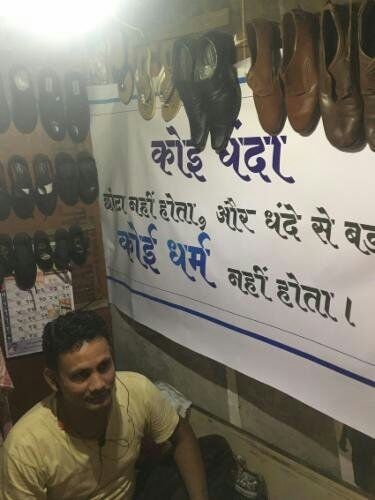 कोई धंदा
छोटा नहीं होता, और धंदे से बड़ा
कोई धर्म नहीं होता।